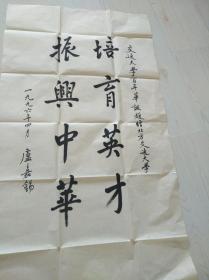 交通大学百年华诞题赠北方交通大学
培育英才
振興中華
一九九六年四月 盧嘉錫